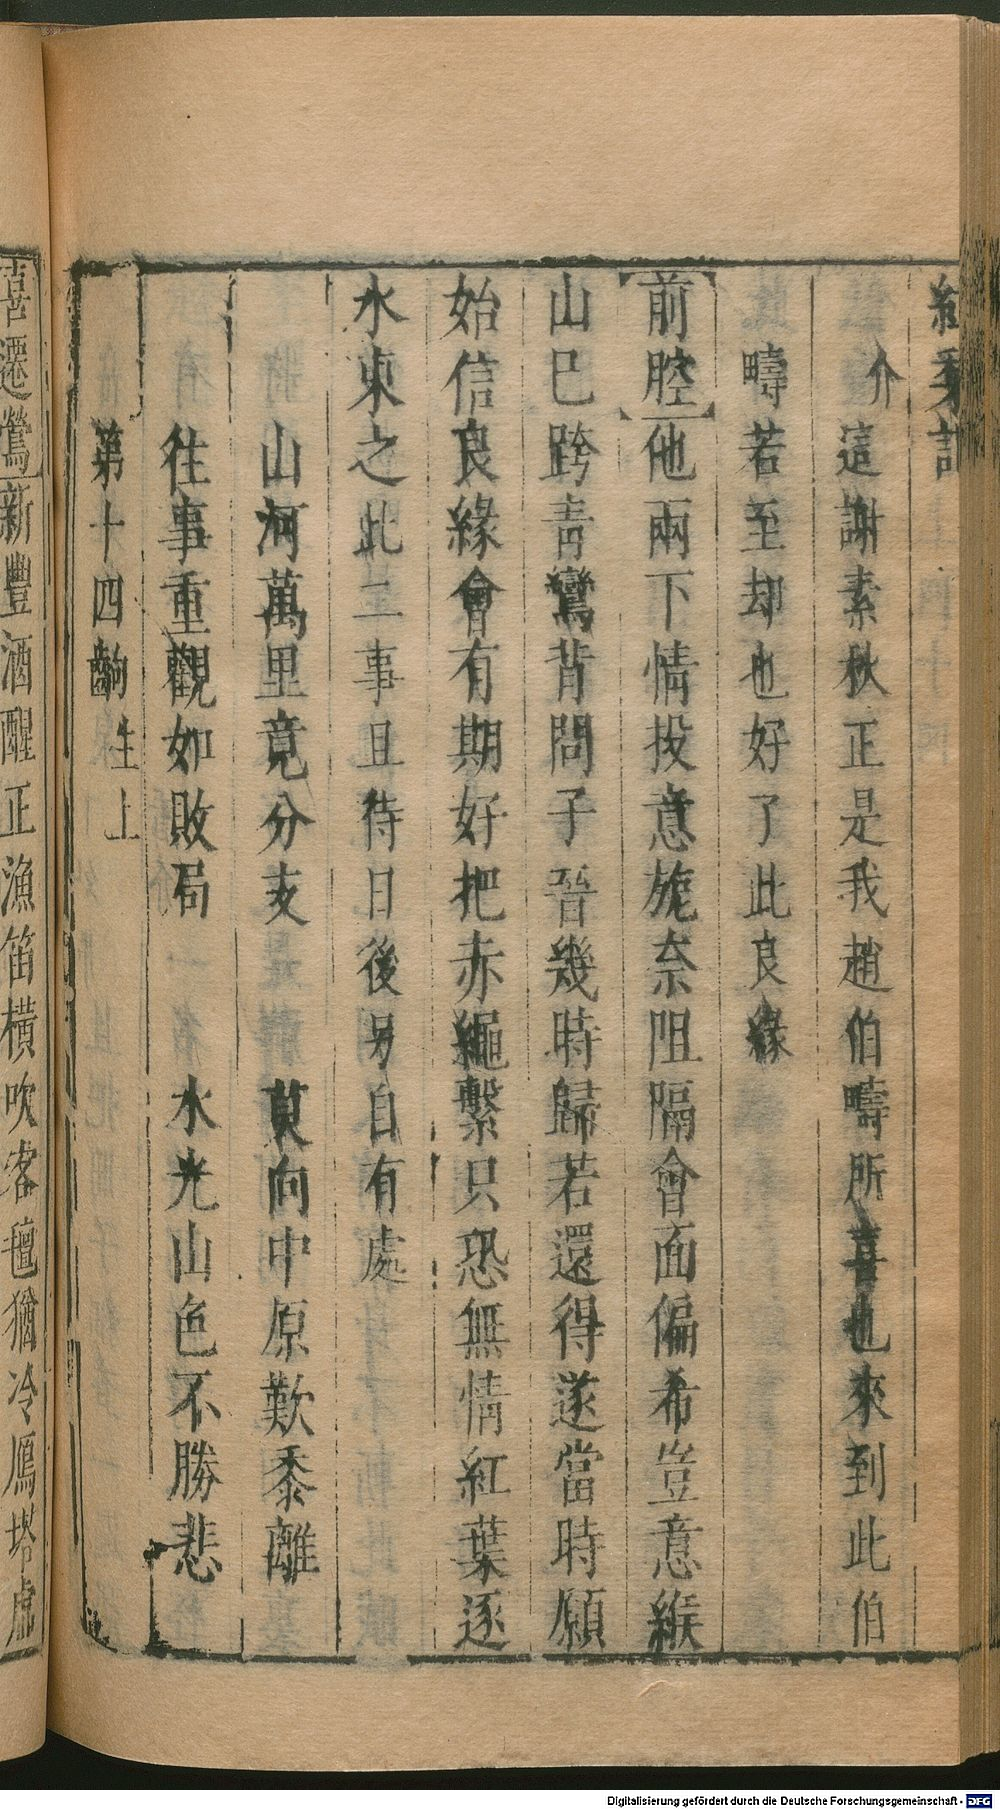 紅梨記
介
這謝素秋正是我趙伯疇所喜也來到此伯
疇若至却也好了此良緣
前腔他兩下情投意旎奈阻隔會面偏希豈意緱
山巳跨靑鸞背問子晉幾時歸若還得遂當時願
始信良緣會有期好把赤繩繫只恐無情紅葉逐
水東之此二事且待日後另自有處
山河萬里竟分支 莫向中原歎黍離
往事重觀如敗局 水光山色不勝悲
第十四齣 生上
喜遷鶯新豐酒醒正漁笛橫吹客氊猶冷鴈塔虛
Digitalisierung gefördert durch die Deutsche Forschungsgemeinschaft - DFG